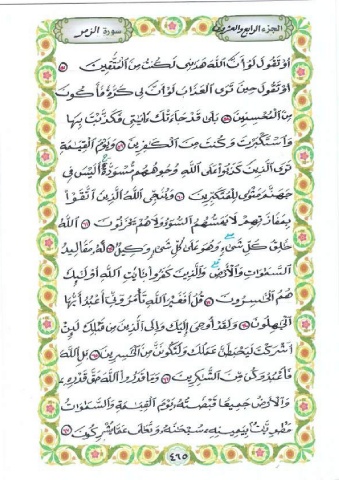 الجزء الرابع والعشرون
سورة الزمر
أَوْ تَقُولَ لَوْ أَنَّ اللَّهَ هَدَىٰنِي لَكُنتُ مِنَ الْمُتَّقِينَ ٥٧
أَوْ تَقُولَ حِينَ تَرَى الْعَذَابَ لَوْ أَنَّ لِي كَرَّةً فَأَكُونَ
مِنَ الْمُحْسِنِينَ ٥٨ بَلَىٰ قَدْ جَاءَتْكَ ءَايَٰتِي فَكَذَّبْتَ بِهَا
وَاسْتَكْبَرْتَ وَكُنتَ مِنَ الْكَٰفِرِينَ ٥٩ وَيَوْمَ الْقِيَٰمَةِ
تَرَى الَّذِينَ كَذَبُوا عَلَى اللَّهِ وُجُوهُهُم مُّسْوَدَّةٌ أَلَيْسَ فِي
جَهَنَّمَ مَثْوًى لِّلْمُتَكَبِّرِينَ ٦٠ وَيُنَجِّي اللَّهُ الَّذِينَ اتَّقَوْا
بِمَفَازَتِهِمْ لَا يَمَسُّهُمُ السُّوءُ وَلَا هُمْ يَحْزَنُونَ ٦١ اللَّهُ
خَٰلِقُ كُلِّ شَيْءٍ وَهُوَ عَلَىٰ كُلِّ شَيْءٍ وَكِيلٌ ٦٢ لَّهُ مَقَالِيدُ
السَّمَٰوَٰتِ وَالْأَرْضِ وَالَّذِينَ كَفَرُوا بِـَٔايَٰتِ اللَّهِ أُولَٰئِكَ
هُمُ الْخَٰسِرُونَ ٦٣ قُلْ أَفَغَيْرَ اللَّهِ تَأْمُرُونِّي أَعْبُدُ أَيُّهَا
الْجَٰهِلُونَ ٦٤ وَلَقَدْ أُوحِيَ إِلَيْكَ وَإِلَى الَّذِينَ مِن قَبْلِكَ لَئِنْ
أَشْرَكْتَ لَيَحْبَطَنَّ عَمَلُكَ وَلَتَكُونَنَّ مِنَ الْخَٰسِرِينَ ٦٥ بَلِ اللَّهَ
فَاعْبُدْ وَكُن مِّنَ الشَّٰكِرِينَ ٦٦ وَمَا قَدَرُوا اللَّهَ حَقَّ قَدْرِهِ
وَالْأَرْضُ جَمِيعًا قَبْضَتُهُ يَوْمَ الْقِيَٰمَةِ وَالسَّمَٰوَٰتُ
مَطْوِيَّٰتٌ بِيَمِينِهِ سُبْحَٰنَهُ وَتَعَٰلَىٰ عَمَّا يُشْرِكُونَ ٦٧
٤٦٥